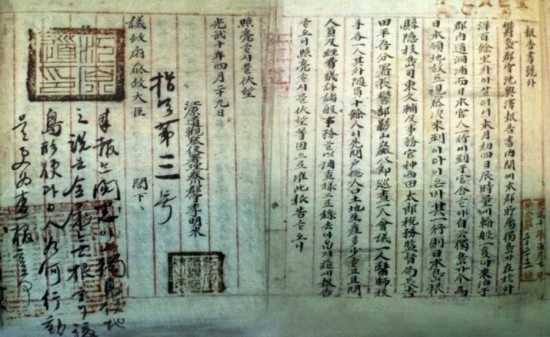 報告書號外
鬱島郡守沈興澤報告書內開에本郡所屬獨島가在於外
洋百餘里外이살더니本月初四日辰時量에輪船一隻이來泊于
郡內道洞浦而日本官人一行이到于官舍ᄒᆞ야自云獨島가今爲
日本領地故로視察次來到이다이온바其一行則日本島根
縣隱岐島司東文輔及事務官神西田太郎稅務監督局長吉
田平吾分署長警部影山巖八郎巡査一人會議一人醫師技
手各一人其外隨員十餘人이先問戶總人口土地生産多少ᄒᆞ고且問
人員及經費幾許諸般事務을以調査樣으로錄去이압기玆에報告
ᄒᆞ오니照亮ᄒᆞ시믈伏望等因으로准此報告ᄒᆞ오니
照亮ᄒᆞ시믈伏望
光武十年四月二十九日
江原道觀察使署理春川郡守李明來
議政府參政大臣 閣下
指令第三號
來報는閱悉이고獨島領地
之說은全屬無根ᄒᆞ나該
島形便과日人如何行動
을更爲查報ᄒᆞᆯ事